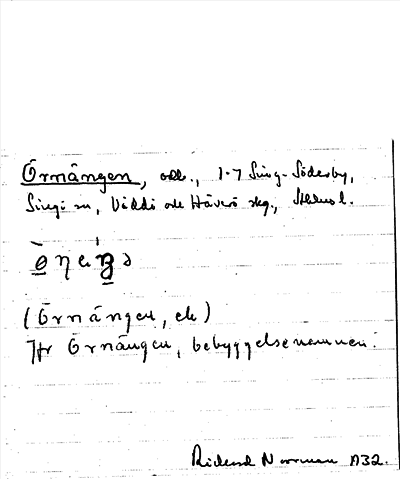 Örnängen, 1-7 Sing-Söderby,
Singö sn, Väddö och Häverö skg., Sthlms l.
(Örnängen, ek)
Jfr Örnängen, bebyggelsenamnen.
Rickard Norrman A32.